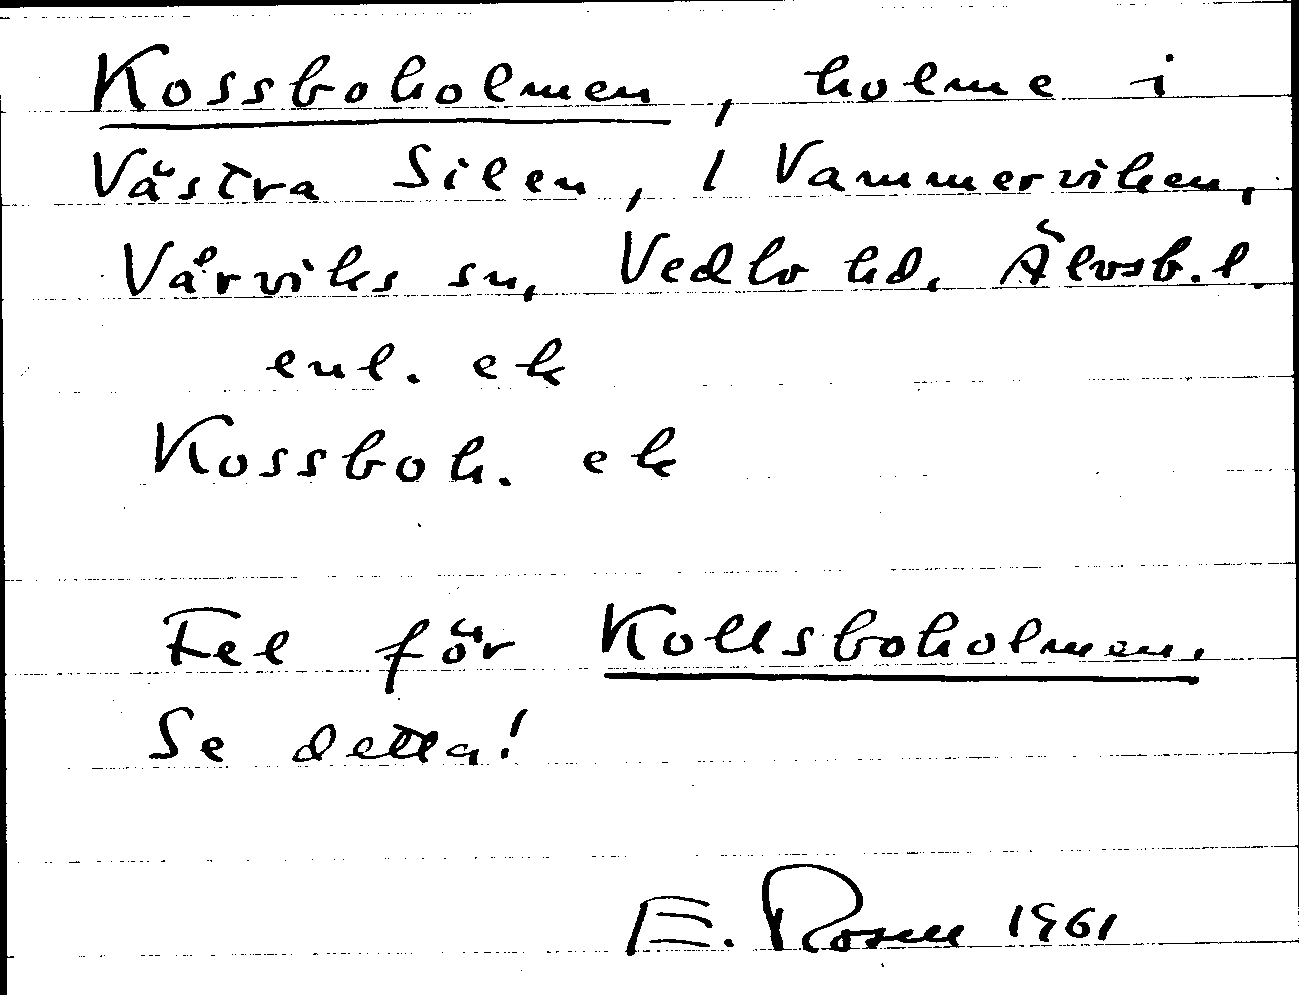 Kossboholmen, holme i
Västra Silen, i Vammerviken,
Vårviks sn, Vedbo hd. Älvsb. l.
enl. ek
Kossboh. ek
Fel för Kollsboholmen.
Se detta!
E. Rosell 1961